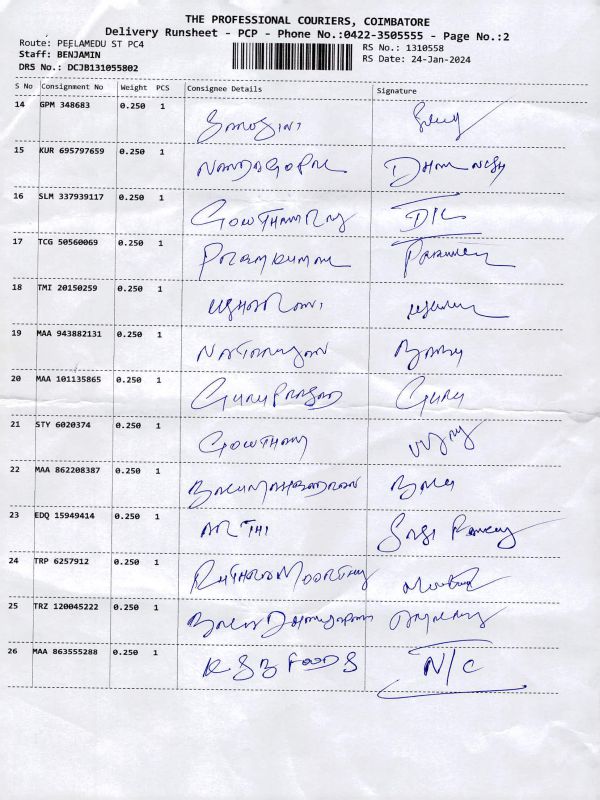 THE PROFESSIONAL COURIERS, COIMBATORE
Delivery Runsheet - PCP - Phone No.:0422-3505555 - Page No.:2
Route: PEELAMEDU ST PC4 RS No.: 1310558
Staff: BENJAMIN RS Date: 24-Jan-2024
DRS No.: DCJB131055802
S No Consignment No Weight PCS Consignee Details Signature
14 GPM 348683 0.250 1 Sarojini
15 KUR 695797659 0.250 1 NANDAGOPAL DHANUSH
16 SLM 337939117 0.250 1 GOWTHAMRAJ D/L
17 TCG 50560069 0.250 1 Premkumar
18 TMI 20150259 0.250 1 Usharani
19 MAA 943882131 0.250 1 Natarajan
20 MAA 101135865 0.250 1 GURUPRASAD Guru
21 STY 6020374 0.250 1 GOWTHAM
22 MAA 862208387 0.250 1 Bala
23 EDQ 15949414 0.250 1 ARTHI
24 TRP 6257912 0.250 1
25 TRZ 120045222 0.250 1
26 MAA 863555288 0.250 1 KSB FOODS N/C